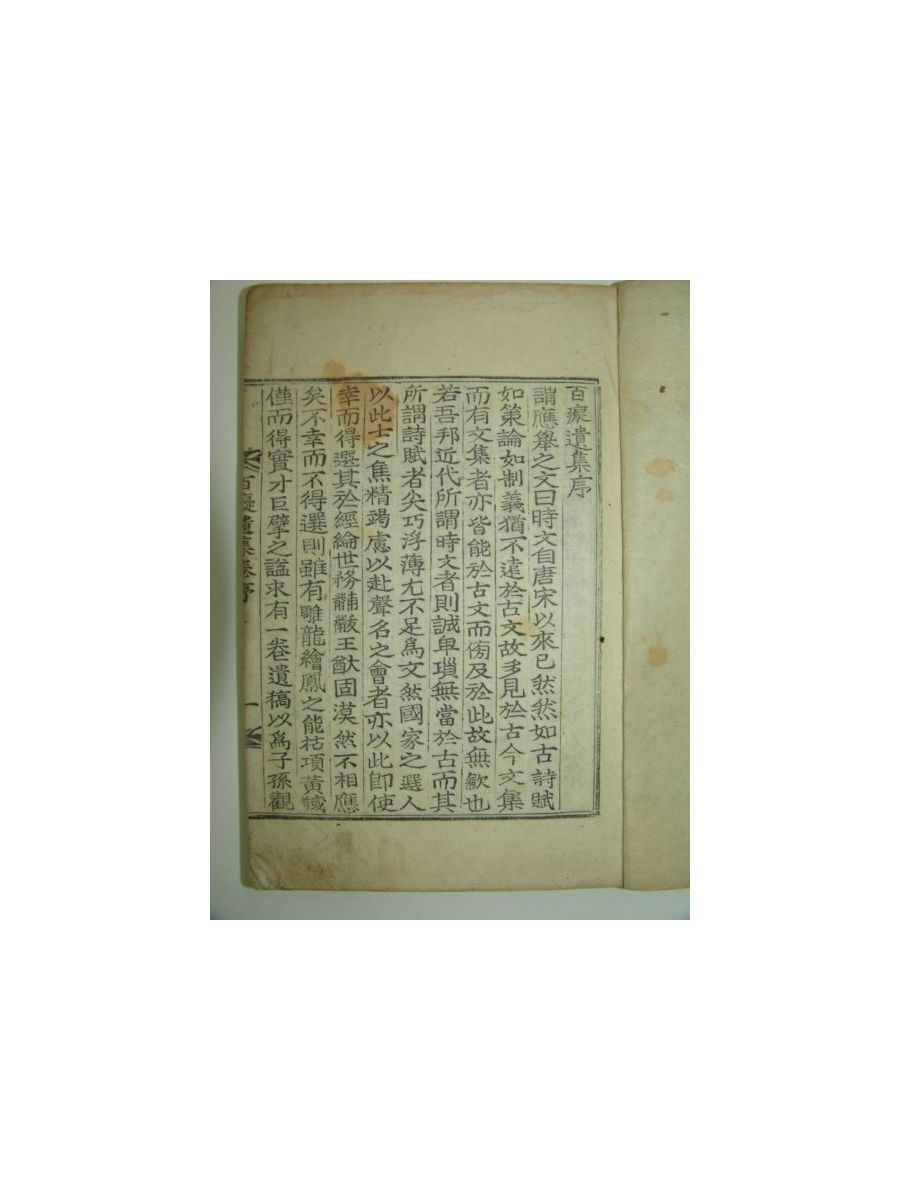 百癡遺集序
謂應舉之文曰時文自唐宋以來已然然如古詩賦
如策論如制義猶不遠於古文故多見於古今文集
而有文集者亦皆能於古文而傍及於此故無歉也
若吾邦近代所謂時文者則誠卑瑣無當於古而其
所謂詩賦者尖巧浮薄尤不足爲文然國家之選人
以此士之焦精竭慮以赴聲名之會者亦以此卽使
幸而得選其於經綸世務黼黻王猷固漠然不相應
矣不幸而不得選則雖有雕龍繪鳳之能枯項黃馘
僅而得實才巨擘之謚求有一卷遺稿以爲子孫觀
百癡遺集卷序
一